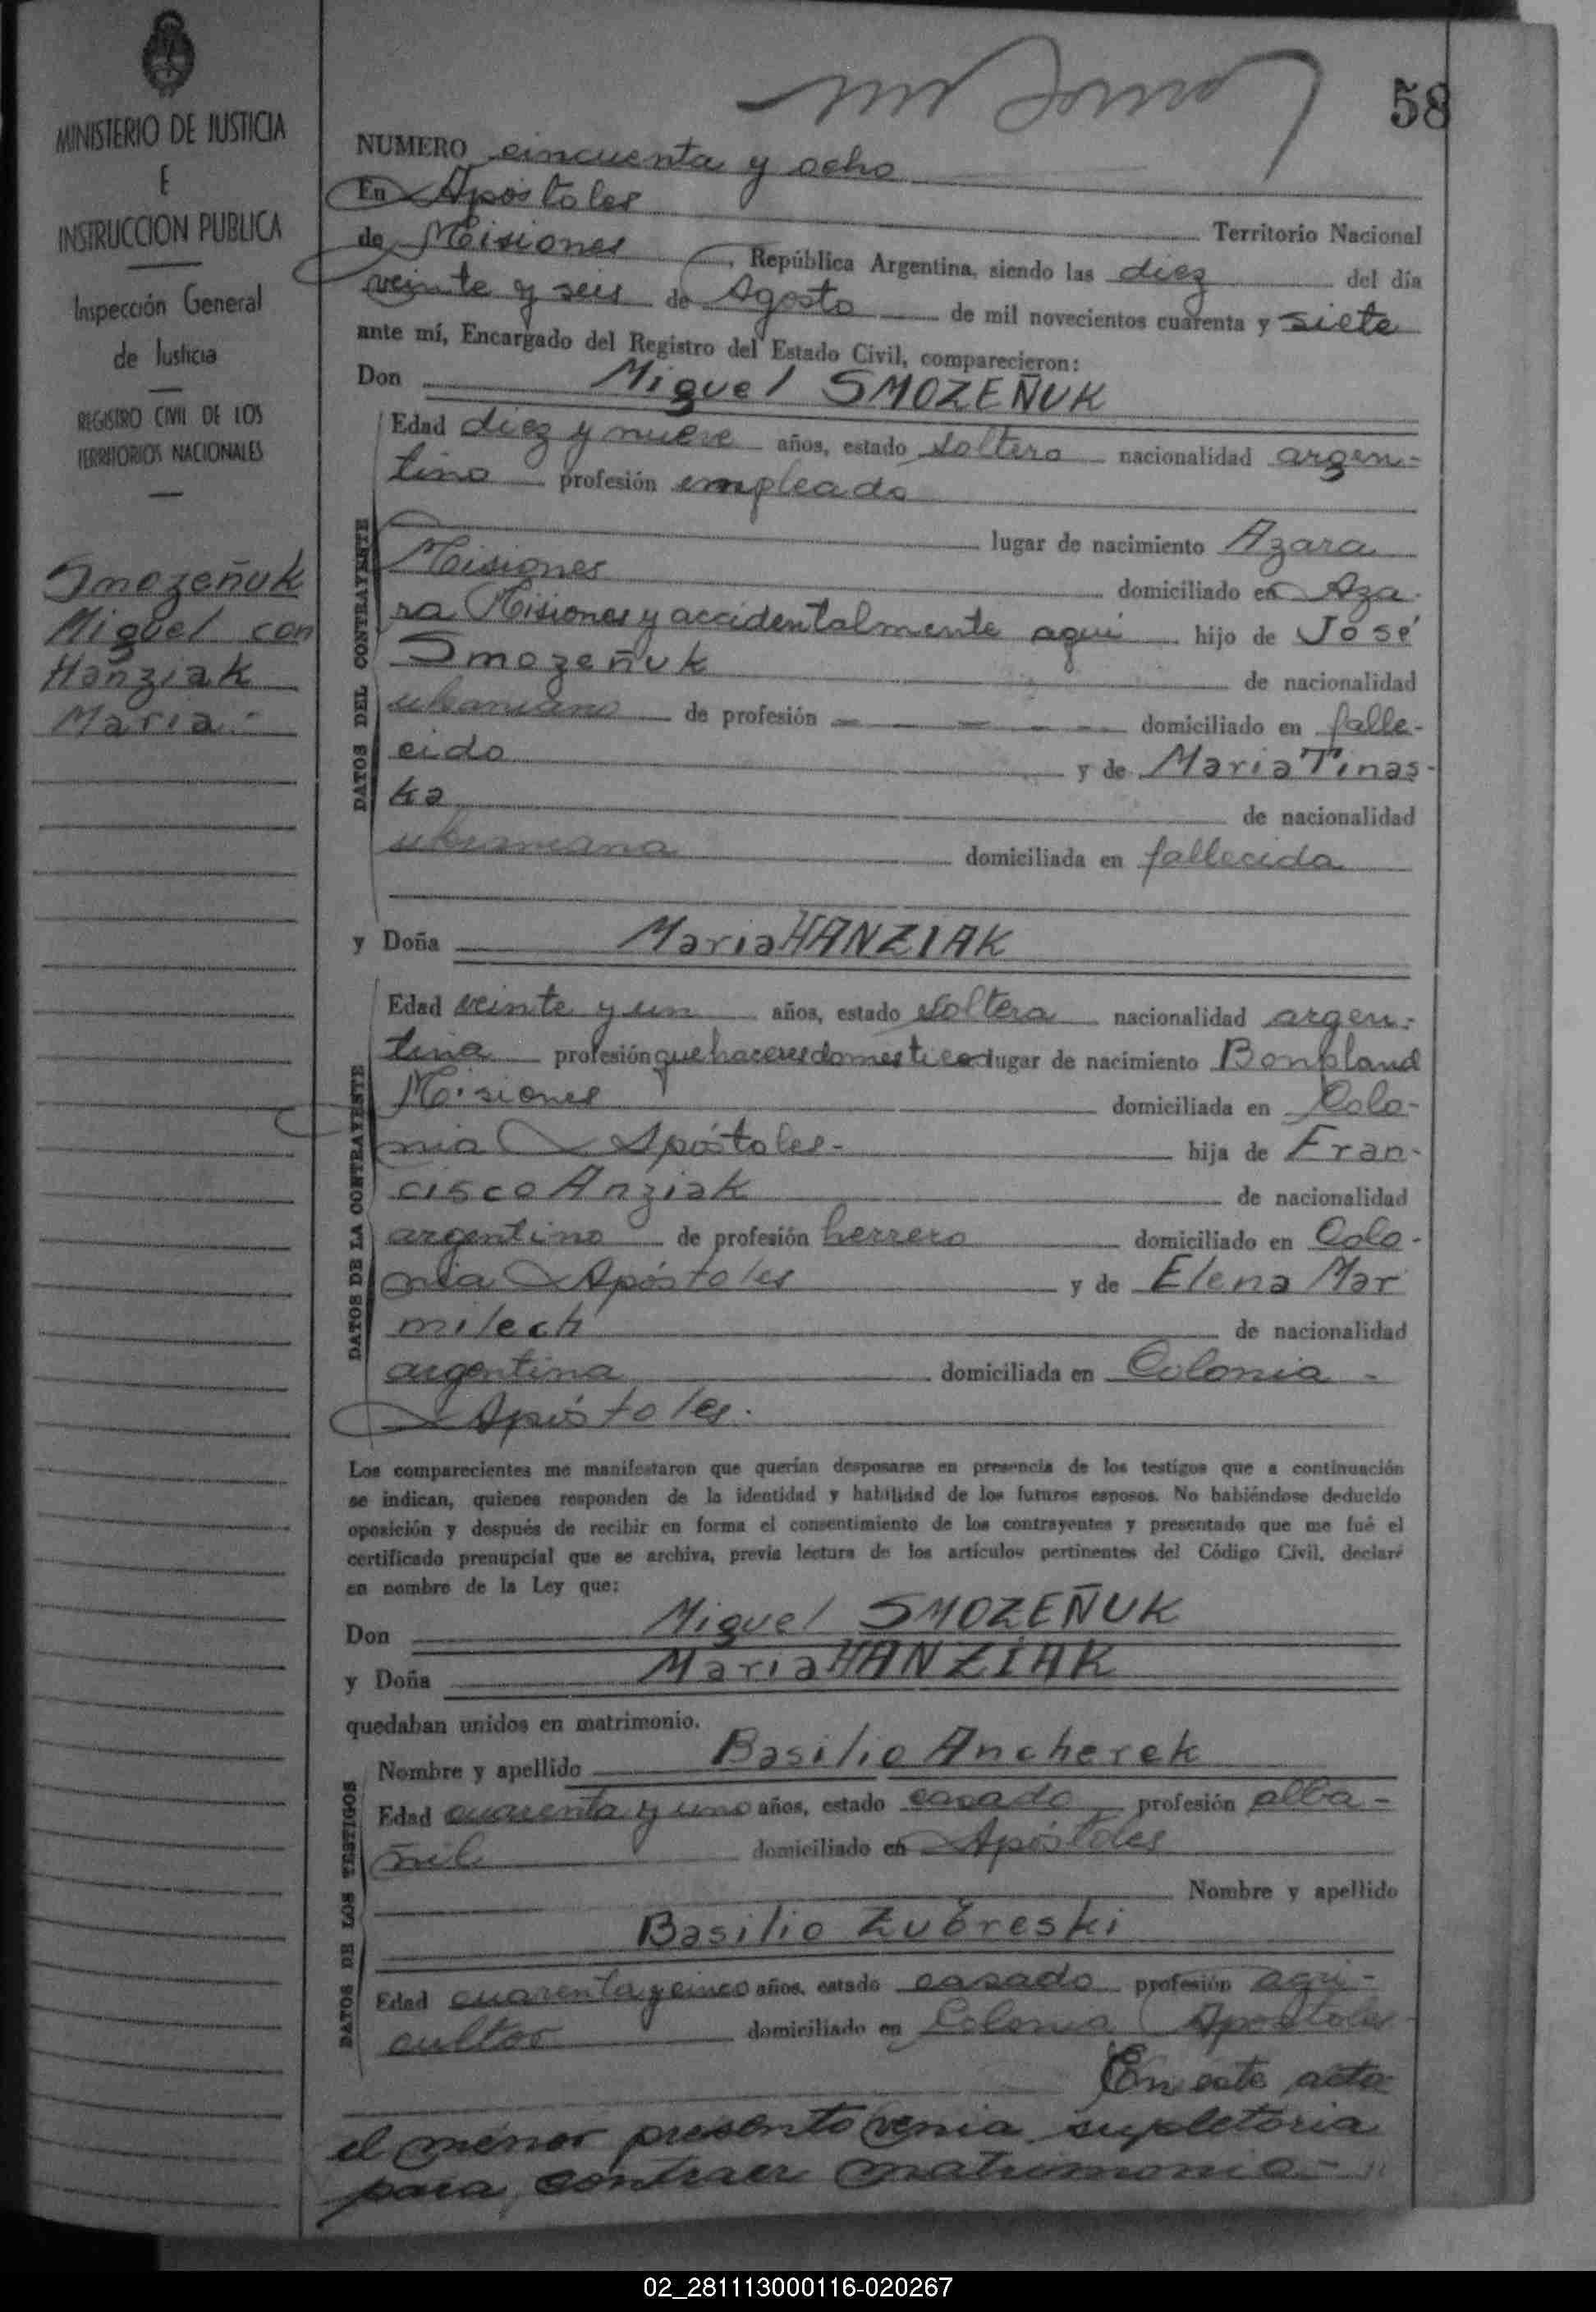 MINISTERIO DE JUSTICIA
E
INSTRUCCION PUBLICA
Inspección General
de Justicia
REGISTRO CIVIL DE LOS
TERRITORIOS NACIONALES
Smozeñuk
Miguel con
Hanziak
Maria.-
58
NUMERO cincuenta y ocho
En Apóstoles Territorio Nacional
de Misiones, República Argentina, siendo las diez del día
veinte y seis de Agosto de mil novecientos cuarenta y siete
ante mí, Encargado del Registro del Estado Civil, comparecieron:
Don Miguel SMOZEÑUK
DATOS DEL CONTRAYENTE
Edad diez y nueve años, estado soltero nacionalidad argen-
tino profesión empleado
lugar de nacimiento Azara
Misiones domiciliado en Aza-
ra Misiones y accidentalmente aquí hijo de José
Smozeñuk de nacionalidad
ukaniano de profesión - - - - domiciliado en falle-
cido y de Maria Tinas-
ka de nacionalidad
ukraniana domiciliada en fallecida
y Doña Maria HANZIAK
DATOS DE LA CONTRAYENTE
Edad veinte y un años, estado soltera nacionalidad argen-
tina profesión quehaceres domesticos lugar de nacimiento Bonpland
Misiones domiciliada en Colo-
nia Apóstoles- hija de Fran-
cisco Anziak de nacionalidad
argentino de profesión herrero domiciliado en Colo-
nia Apóstoles y de Elena Mar
milech de nacionalidad
argentina domiciliada en Colonia -
Apóstoles.
Los comparecientes me manifestaron que querían desposarse en presencia de los testigos que a continuación
se indican, quienes responden de la identidad y habilidad de los futuros esposos. No habiéndose deducido
oposición y después de recibir en forma el consentimiento de los contrayentes y presentado que me fué el
certificado prenupcial que se archiva, previa lectura de los artículos pertinentes del Código Civil, declaré
en nombre de la Ley que:
Don Miguel SMOZEÑUK
y Doña Maria HANZIAK
quedaban unidos en matrimonio.
DATOS DE LOS TESTIGOS
Nombre y apellido Basilio Ancherek
Edad cuarenta y uno años, estado casado profesión alba-
ñil domiciliado en Apóstoles
Nombre y apellido
Basilio Zubreski
Edad cuarenta y cinco años, estado casado profesión agri-
cultor domiciliado en Colonia Apostoles
En este acto
el menor presentó venia supletoria
para contraer matrimonio.-
02_281113000116-020267